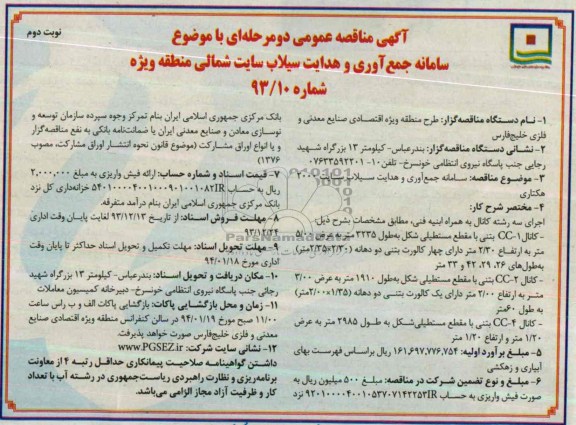 نوبت دوم
آگهی مناقصه عمومی دومرحله‌ای با موضوع
سامانه جمع‌آوری و هدایت سیلاب سایت شمالی منطقه ویژه
شماره ۹۳/۱۰
۱- نام دستگاه مناقصه‌گزار: طرح منطقه ویژه اقتصادی صنایع معدنی و
فلزی خلیج‌فارس
۲- نشانی دستگاه مناقصه‌گزار: بندرعباس- کیلومتر ۱۳ بزرگراه شهید
رجایی جنب پاسگاه نیروی انتظامی خونسرخ- تلفن ۱۰-۰۷۶۳۳۵۹۲۲۰۱
۳- موضوع مناقصه: سامانه جمع‌آوری و هدایت سیلاب
هکتاری
۴- مختصر شرح کار:
اجرای سه رشته کانال به همراه ابنیه فنی، مطابق مشخصات بشرح ذیل:
- کانال CC-۱ بتنی با مقطع مستطیلی شکل به‌طول ۳۲۳۵ متر به عرض ۵/۰۰
متر به ارتفاع ۲/۳۰ متر دارای چهار کالورت بتنی دو دهانه (۲/۳۰×۲/۳۵متر)
به‌طول‌های ۲۶، ۲۹، ۴۲ و ۳۳ متر
- کانال CC-۲ بتنی با مقطع مستطیلی شکل به‌طول ۱۹۱۰ متر به عرض ۳/۰۰
متر به ارتفاع ۲/۰۰ متر دارای یک کالورت بتنی دو دهانه (۱/۳۵×۲/۰۰متر)
به طول ۶۰متر
- کانال CC-۴ بتنی با مقطع مستطیلی‌شکل به طول ۲۹۸۵ متر به عرض
۱/۲۰ متر و ارتفاع ۱/۲۰ متر
۵- مبلغ برآورد اولیه: ۱۶۱,۶۹۷,۷۷۶,۷۵۴ ریال براساس فهرست بهای
آبیاری و زهکشی
۶- مبلغ و نوع تضمین شرکت در مناقصه: مبلغ ۵۰۰ میلیون ریال به
صورت فیش واریزی به حساب IR۹۲۰۱۰۰۰۰۴۰۰۱۰۵۳۷۰۷۱۴۲۲۵۳ نزد
بانک مرکزی جمهوری اسلامی ایران بنام تمرکز وجوه سپرده سازمان توسعه و
نوسازی معادن و صنایع معدنی ایران یا ضمانت‌نامه بانکی به نفع مناقصه‌گزار
و یا انواع اوراق مشارکت (موضوع قانون نحوه انتشار اوراق مشارکت، مصوب
۱۳۷۶)
۷- قیمت اسناد و شماره حساب: ارائه فیش واریزی به مبلغ ۲,۰۰۰,۰۰۰
ریال به حساب IR۵۴۰۱۰۰۰۰۴۰۰۱۰۰۰۹۰۱۰۰۱۰۸۲ خزانه‌داری کل نزد
بانک مرکزی جمهوری اسلامی ایران بنام درآمد متفرقه.
۸- مهلت فروش اسناد: از تاریخ ۹۳/۱۲/۱۳ لغایت پایان وقت اداری
۹۳/۱۲/۲۴
۹- مهلت تحویل اسناد: مهلت تکمیل و تحویل اسناد حداکثر تا پایان وقت
اداری مورخ ۹۴/۰۱/۱۸
۱۰- مکان دریافت و تحویل اسناد: بندرعباس- کیلومتر ۱۳ بزرگراه شهید
رجائی جنب پاسگاه نیروی انتظامی خونسرخ- دبیرخانه کمیسیون معاملات
۱۱- زمان و محل بازگشایی پاکات: بازگشایی پاکات الف و ب راس ساعت
۱۱/۰۰ صبح مورخ ۹۴/۰۱/۱۹ در سالن کنفرانس منطقه ویژه اقتصادی صنایع
معدنی و فلزی خلیج‌فارس صورت خواهد پذیرفت
۱۲- نشانی سایت شرکت: WWW.PGSEZ.ir
داشتن گواهینامه صلاحیت پیمانکاری حداقل رتبه ۴ از معاونت
برنامه‌ریزی و نظارت راهبردی ریاست‌جمهوری در رشته آب با تعداد
کار و ظرفیت آزاد مجاز الزامی می‌باشد.